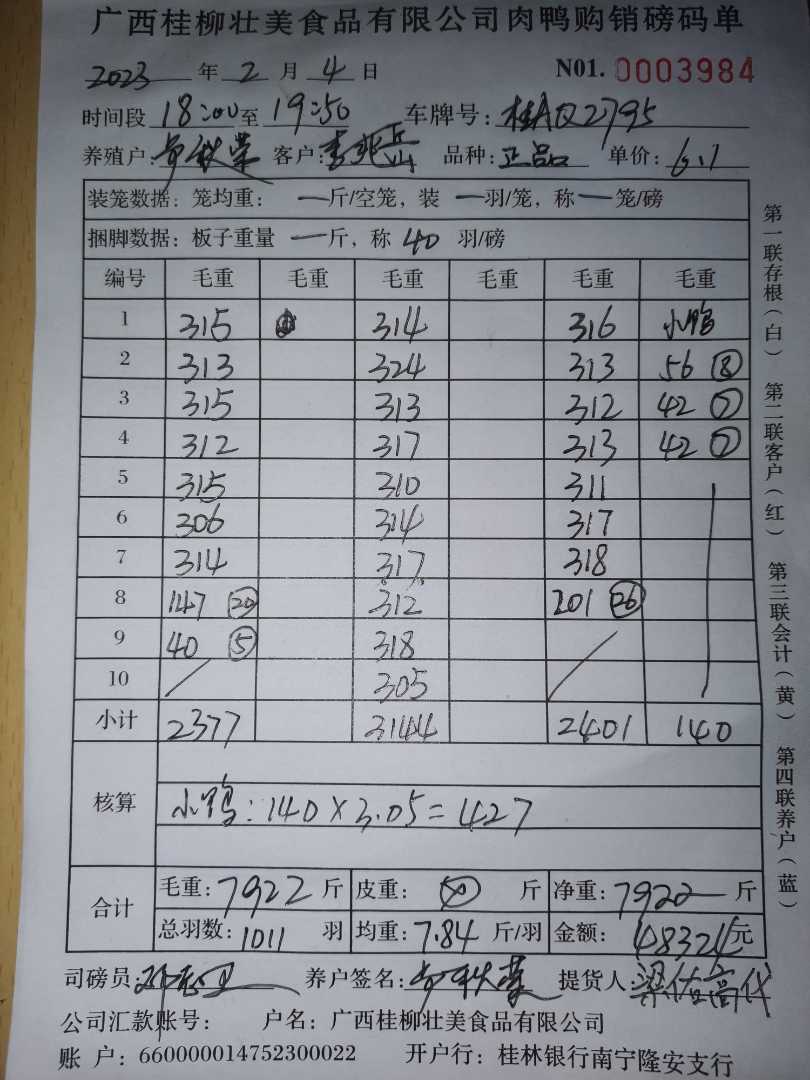 广西桂柳壮美食品有限公司肉鸭购销磅码单
2023 年 2 月 4 日 N01. 0003984
时间段 18:00 至 19:50 车牌号: 桂AQ2795
养殖户: 客户: 李兆岳 品种: 正品 单价: 6.1
装笼数据: 笼均重: 一斤/空笼, 装 一羽/笼, 称 一笼/磅
捆脚数据: 板子重量 一斤, 称 40 羽/磅
编号 毛重 毛重 毛重 毛重 毛重 毛重
1 315 314 316 小鸭
2 313 324 313 56 ⑧
3 315 313 312 42 ⑦
4 312 317 313 42 ⑦
5 315 310 311
6 306 314 317
7 314 317 318
8 147 ⑳ 312 201 ㉖
9 40 ⑤ 318 /
10 / 305
小计 2377 3144 2401 140
核算 小鸭: 140 × 3.05 = 427
合计 毛重: 7922 斤 皮重: 斤 净重: 7922 斤
总羽数: 1011 羽 均重: 7.84 斤/羽 金额: 48324 元
司磅员: 养户签名: 提货人:
公司汇款账号: 户名: 广西桂柳壮美食品有限公司
账 户: 660000014752300022 开户行: 桂林银行南宁隆安支行
第一联存根(白) 第二联客户(红) 第三联会计(黄) 第四联养户(蓝)